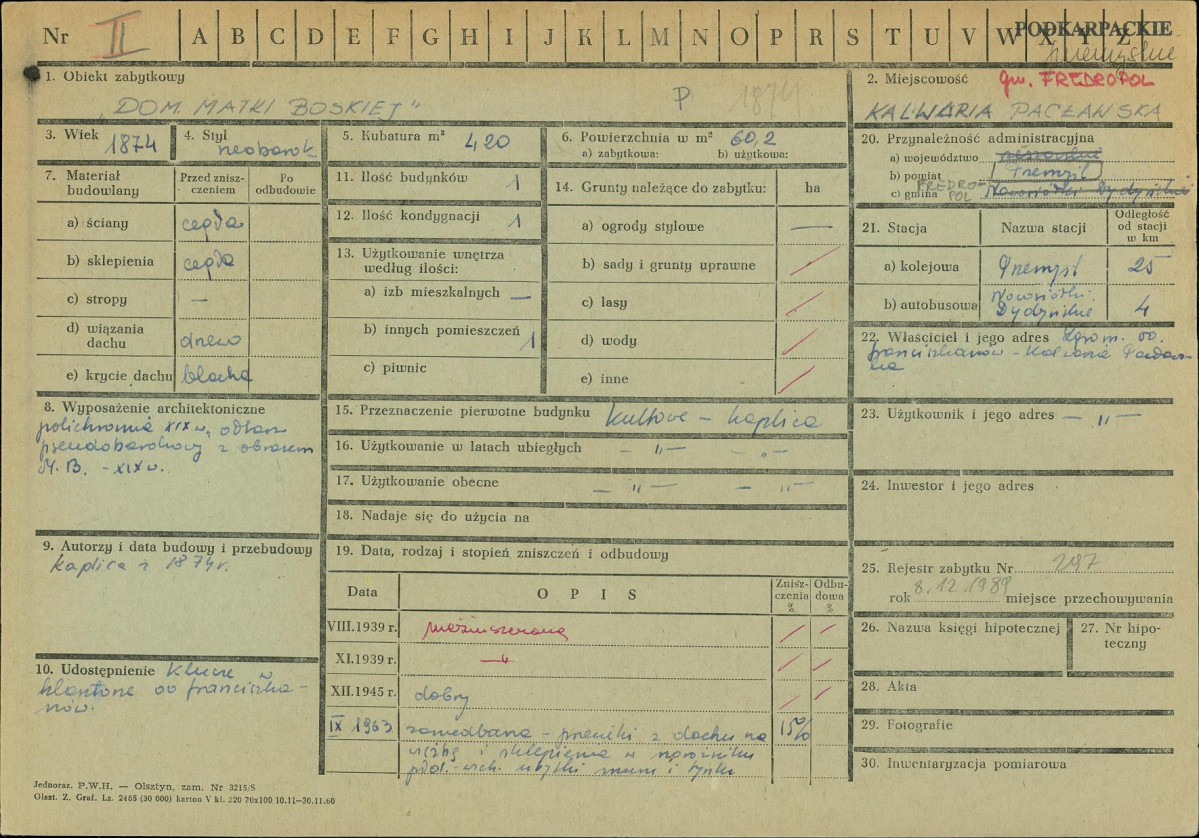 Nr II A B C D E F G H I J K L M N O P R S T U V W X Y Z
PODKARPACKIE
przemyskie
1. Obiekt zabytkowy
„DOM MATKI BOSKIEJ" P 1874
2. Miejscowość gm. FREDROPOL
KALWARIA PACŁAWSKA
3. Wiek 1874
4. Styl neobarok
5. Kubatura m³ 420
6. Powierzchnia w m² 60,2
a) zabytkowa: b) użytkowa:
7. Materiał budowlany
Przed zniszczeniem
Po odbudowie
a) ściany cegła
b) sklepienia cegła
c) stropy —
d) wiązania dachu drewo
e) krycie dachu blacha
8. Wyposażenie architektoniczne
polichromia XIX w, ołtarz
pseudobarokowy z obrazem
M.B. - XIX w.
9. Autorzy i data budowy i przebudowy
kaplica z 1874 r.
10. Udostępnienie klucze w
klasztorze oo franciszka-
nów.
11. Ilość budynków 1
12. Ilość kondygnacji 1
13. Użytkowanie wnętrza
według ilości:
a) izb mieszkalnych —
b) innych pomieszczeń 1
c) piwnic
14. Grunty należące do zabytku: ha
a) ogrody stylowe —
b) sady i grunty uprawne
c) lasy
d) wody
e) inne
15. Przeznaczenie pierwotne budynku kultowe - kaplica
16. Użytkowanie w latach ubiegłych — „ — — „ —
17. Użytkowanie obecne — „ — — „ —
18. Nadaje się do użycia na
19. Data, rodzaj i stopień zniszczeń i odbudowy
Data O P I S Zniszczenia % Odbudowa %
VIII.1939 r. nieżniszczona
XI.1939 r. —„
XII.1945 r. dobry
IX 1963 zaniedbana - przecieki z dachu na 15%
i sklepienia w narożniku
płd.-wsch. ubytki muru i tynku
20. Przynależność administracyjna
a) województwo rzeszowskie
b) powiat Przemyśl
c) gmina FREDROPOL Nowosiółki Dydyńskie
21. Stacja Nazwa stacji Odległość od stacji w km
a) kolejowa Przemyśl 25
b) autobusowa Nowosiółki Dydyńskie 4
22. Właściciel i jego adres Zgrom. oo.
franciszkanów - Kalwaria Pacław-
ska
23. Użytkownik i jego adres — „ —
24. Inwestor i jego adres
25. Rejestr zabytku Nr 297
rok 8.12.1989 miejsce przechowywania
26. Nazwa księgi hipotecznej
27. Nr hipoteczny
28. Akta
29. Fotografie
30. Inwentaryzacja pomiarowa
Jednoraz. P.W.H. — Olsztyn, zam. Nr 3215/S
Olszt. Z. Graf. Lz. 2485 (30 000) karton V kl. 220 70x100 10.11—30.11.60